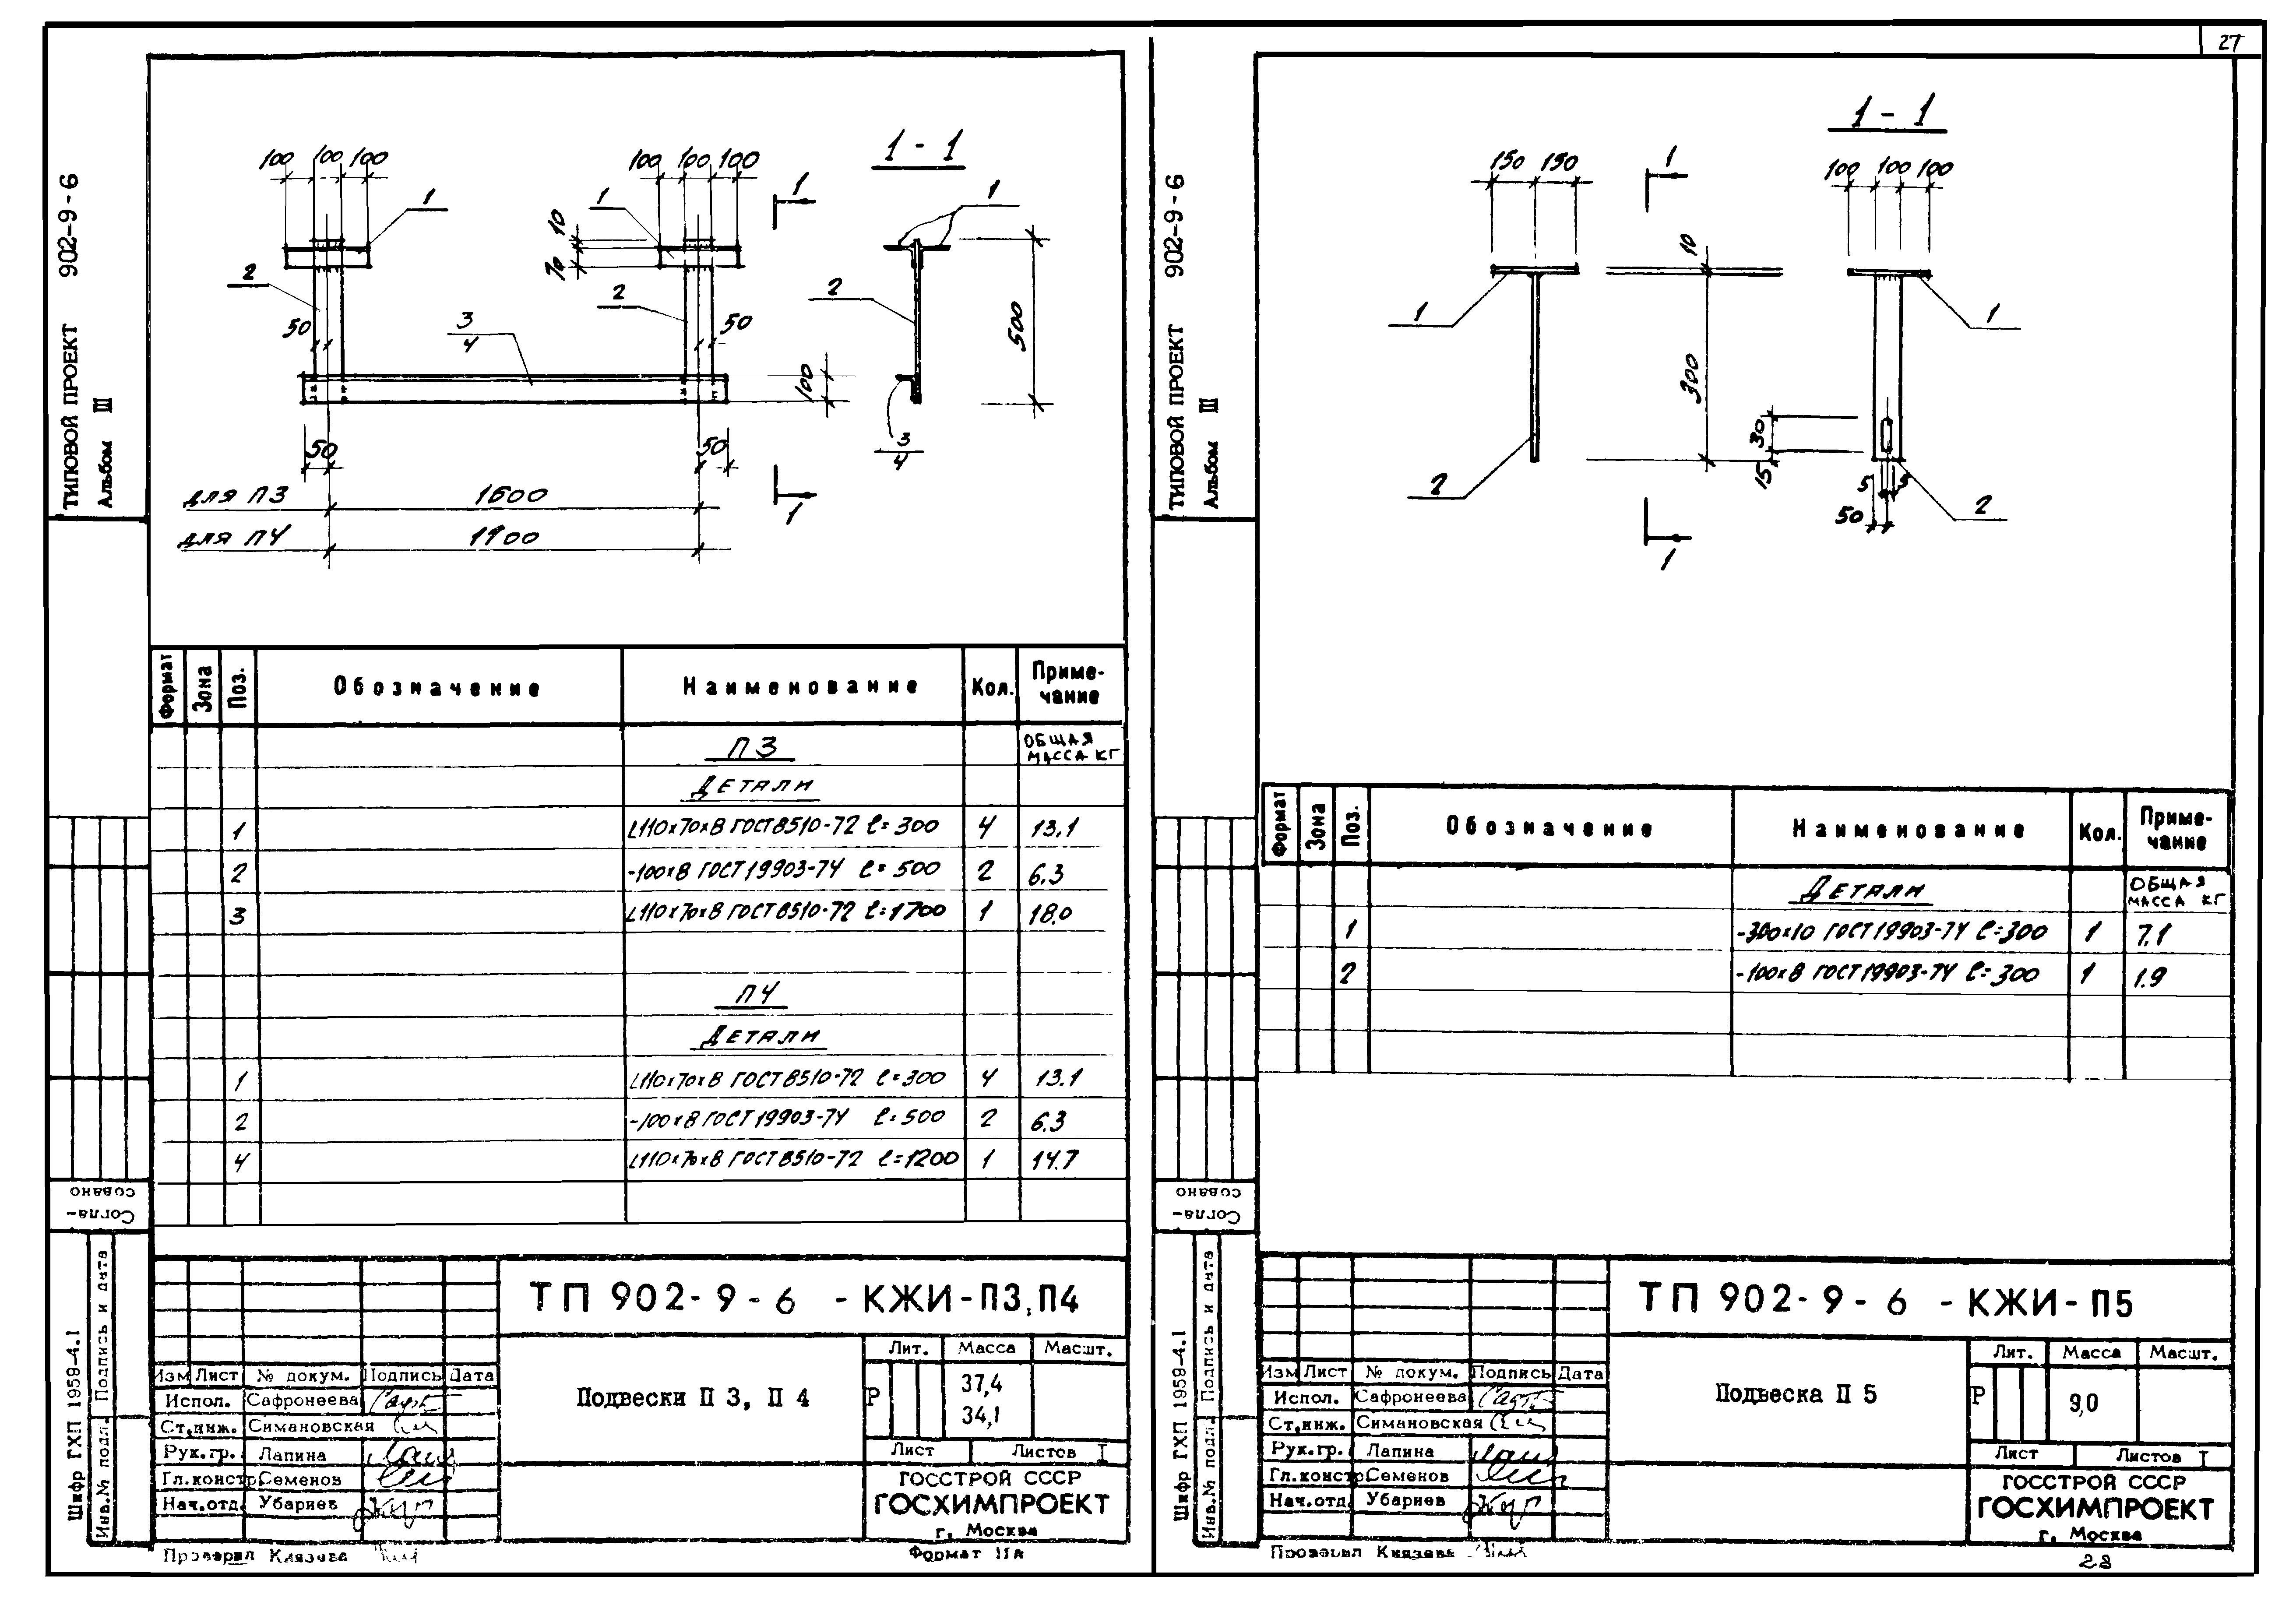 27
ТИПОВОЙ ПРОЕКТ 902-9-6
Альбом III
100 100 100
100 100 100
1 - 1
1
1
1
1
10
70
2
2
2
50
50
3
4
500
100
3
4
50
50
для П3 1600
для П4 1100
1
Формат Зона Поз. Обозначение Наименование Кол. Приме-
чание
П3 ОБЩАЯ
МАССА КГ
ДЕТАЛИ
1 L110×70×8 ГОСТ 8510-72 ℓ=300 4 13.1
2 -100×8 ГОСТ 19903-74 ℓ=500 2 6.3
3 L110×70×8 ГОСТ 8510-72 ℓ=1700 1 18.0
П4
ДЕТАЛИ
1 L110×70×8 ГОСТ 8510-72 ℓ=300 4 13.1
2 -100×8 ГОСТ 19903-74 ℓ=500 2 6.3
4 L110×70×8 ГОСТ 8510-72 ℓ=1200 1 14.7
Согла-
совано
Шифр ГХП 1958-4.1
Инв.№ подл. Подпись и дата
ТП 902-9-6 -КЖИ-П3,П4
Лит. Масса Масшт.
Изм Лист № докум. Подпись Дата
Испол. Сафронеева
Ст.инж. Симановская
Рук.гр. Лапина
Гл.констр. Семенов
Нач.отд. Убариев
Подвески П 3, П 4
Р 37,4
34,1
Лист Листов I
ГОССТРОЙ СССР
ГОСХИМПРОЕКТ
г. Москва
Проверил Князева
Формат 11А
ТИПОВОЙ ПРОЕКТ 902-9-6
Альбом III
1 - 1
150 150
1
100 100 100
10
1
1
300
30
15
2
5 5
50
2
1
Формат Зона Поз. Обозначение Наименование Кол. Приме-
чание
ДЕТАЛИ ОБЩАЯ
МАССА КГ
1 -300×10 ГОСТ 19903-74 ℓ=300 1 7.1
2 -100×8 ГОСТ 19903-74 ℓ=300 1 1.9
Согла-
совано
Шифр ГХП 1958-4.1
Инв.№ подл. Подпись и дата
ТП 902-9-6 -КЖИ-П5
Лит. Масса Масшт.
Изм Лист № докум. Подпись Дата
Испол. Сафронеева
Ст.инж. Симановская
Рук.гр. Лапина
Гл.констр. Семенов
Нач.отд. Убариев
Подвеска П 5
Р 9,0
Лист Листов I
ГОССТРОЙ СССР
ГОСХИМПРОЕКТ
г. Москва
Проверил Князева
28